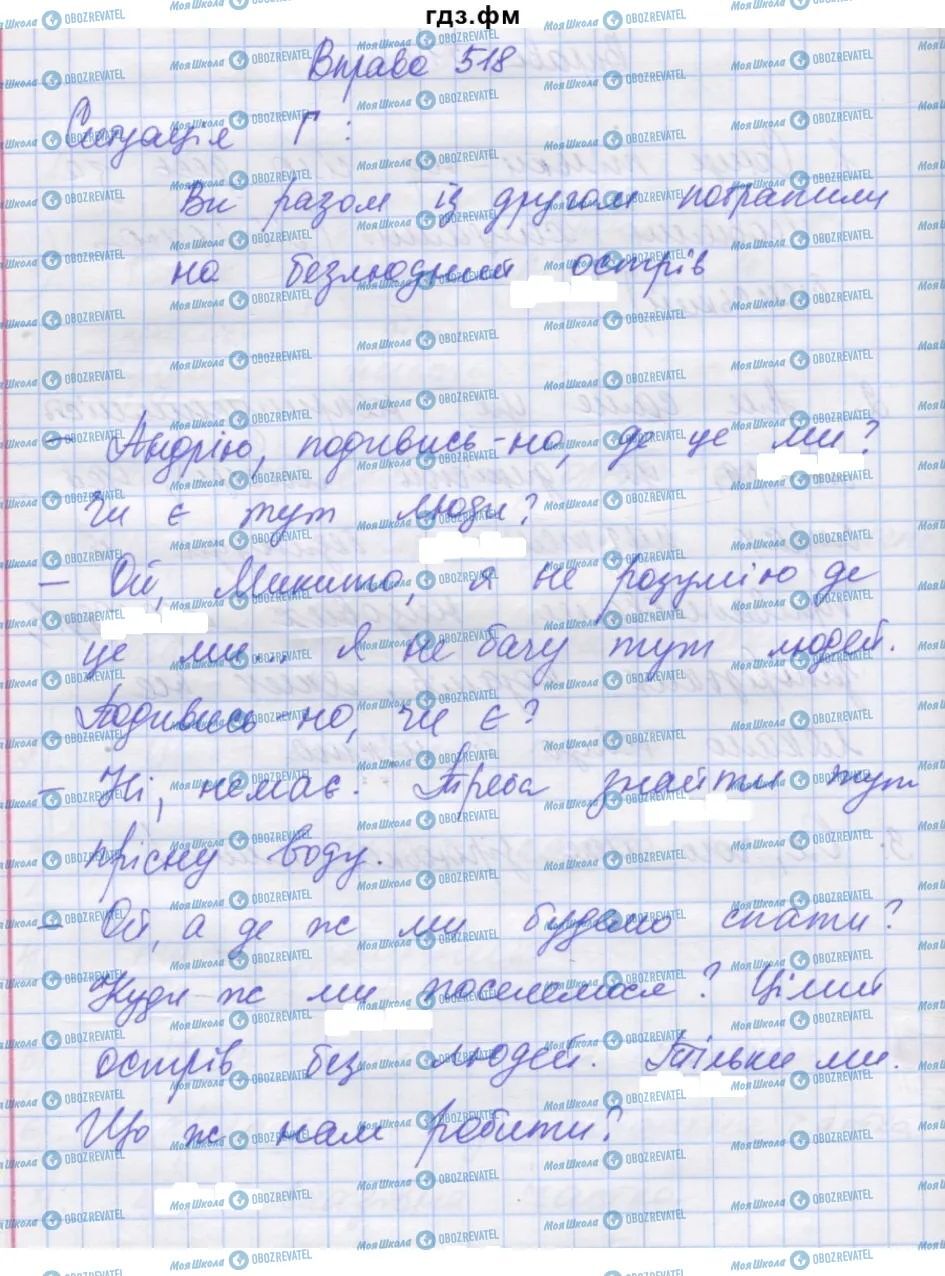 гдз.фм
Вправа 518
Ситуація Г:
Ви разом із другом потрапили
на безлюдний острів
– Андрію, подивись-но, де це ми?
Чи є тут люди?
– Ой, Микито, я не розумію де
це ми. Я не бачу тут людей.
Подивись-но, чи є?
– Ні, немає. Треба знайти тут
прісну воду.
– Ой, а де ж ми будемо спати?
Куди ж ми поселемося? Цілий
острів без людей. Тільки ми.
Що ж нам робити?
МояШкола OBOZREVATEL